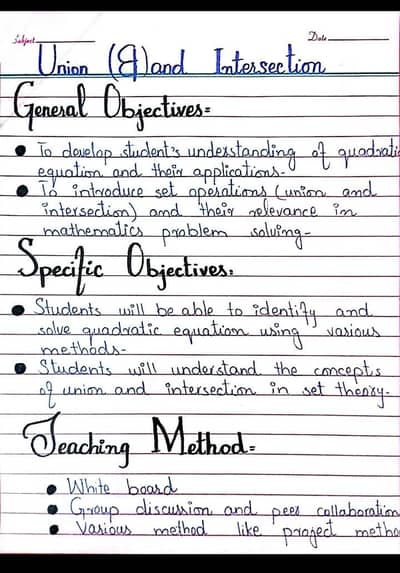 Subject
Date
Union (&) and Intersection
General Objectives:
• To develop student's understanding of quadratic
equation and their applications.
• To introduce set operations (union and
intersection) and their relevance in
mathematics problem solving.
Specific Objectives:
• Students will be able to identify and
solve quadratic equation using various
methods.
• Students will understand the concepts
of union and intersection in set theory.
Teaching Method:
• White board
• Group discussion and peer collaboration
• Various method like project metho